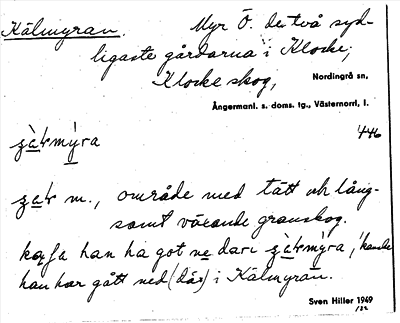 Kälmyran. Myr Ö. de två syd-
ligaste gårdarna i Klocke;
Klocke skog, Nordingrå sn,
Ångermanl. s. doms. tg., Västernorrl. l.
446
m., område med tätt och lång-
samt växande granskog.
han ha got ne dari
han har gått ned (där) i Kälmyran.
Sven Hiller 1949